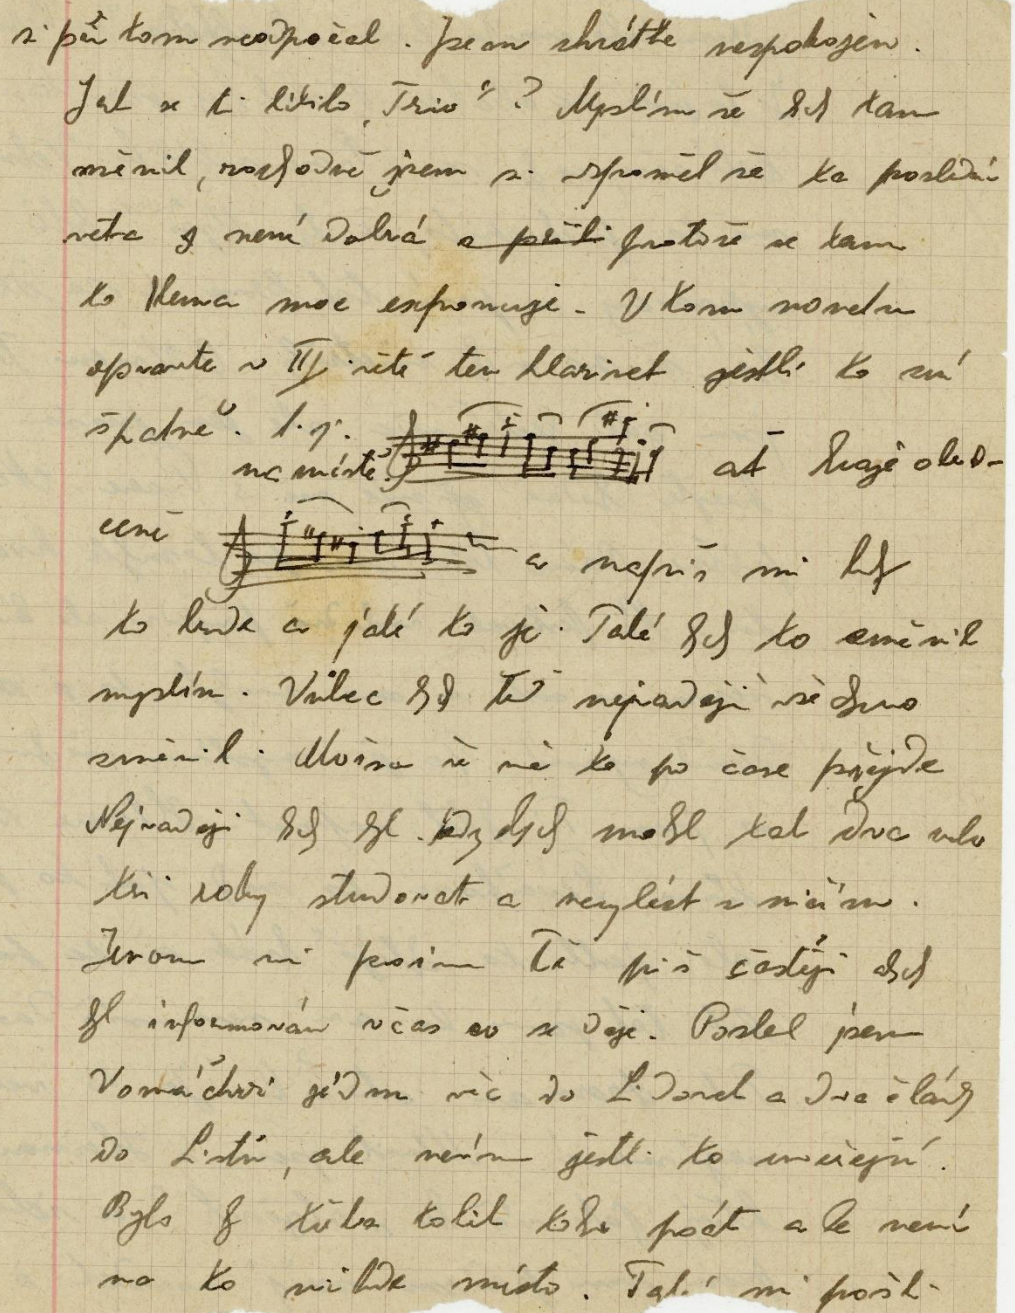 si při tom neodpočal. Jsem zkrátka nespokojen.
Jak se ti líbilo „Trio“? Myslím že bych tam
měnil, rozhodně jsem si vzpomněl že ta poslední
věta není dobrá protože se tam
to téma moc exponuje. V tom rondu
opravte v III větě ten klarinet jestli to zní
špatně. t.j.
na místě ať hraje obrá-
ceně a napiš mi kdy
to bude a jaké to je. Také bych to změnil
myslím. Vůbec bych teď nejraději všechno
změnil. Možná že mě to po čase přejde
Nejraději bych byl kdybych mohl tak dva nebo
tři roky studovat a nevylézt s ničím.
Jinom mi prosím Tě piš častěji abych
byl informován včas co se děje. Poslal jsem
Vomáčkovi jednu věc do Lidovek a dva články
do Listů, ale nevím jestli to uveřejní.
Bylo by třeba tolik toho psát ale není
na to nikde místo. Také mi pošli